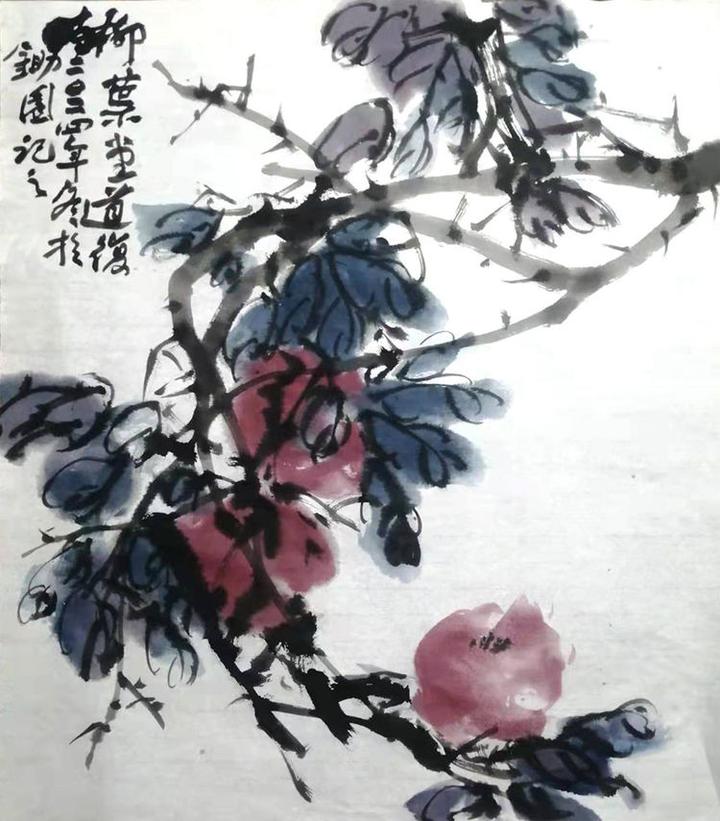 柳葉堂道復
二〇二四年冬於
鋤園記之